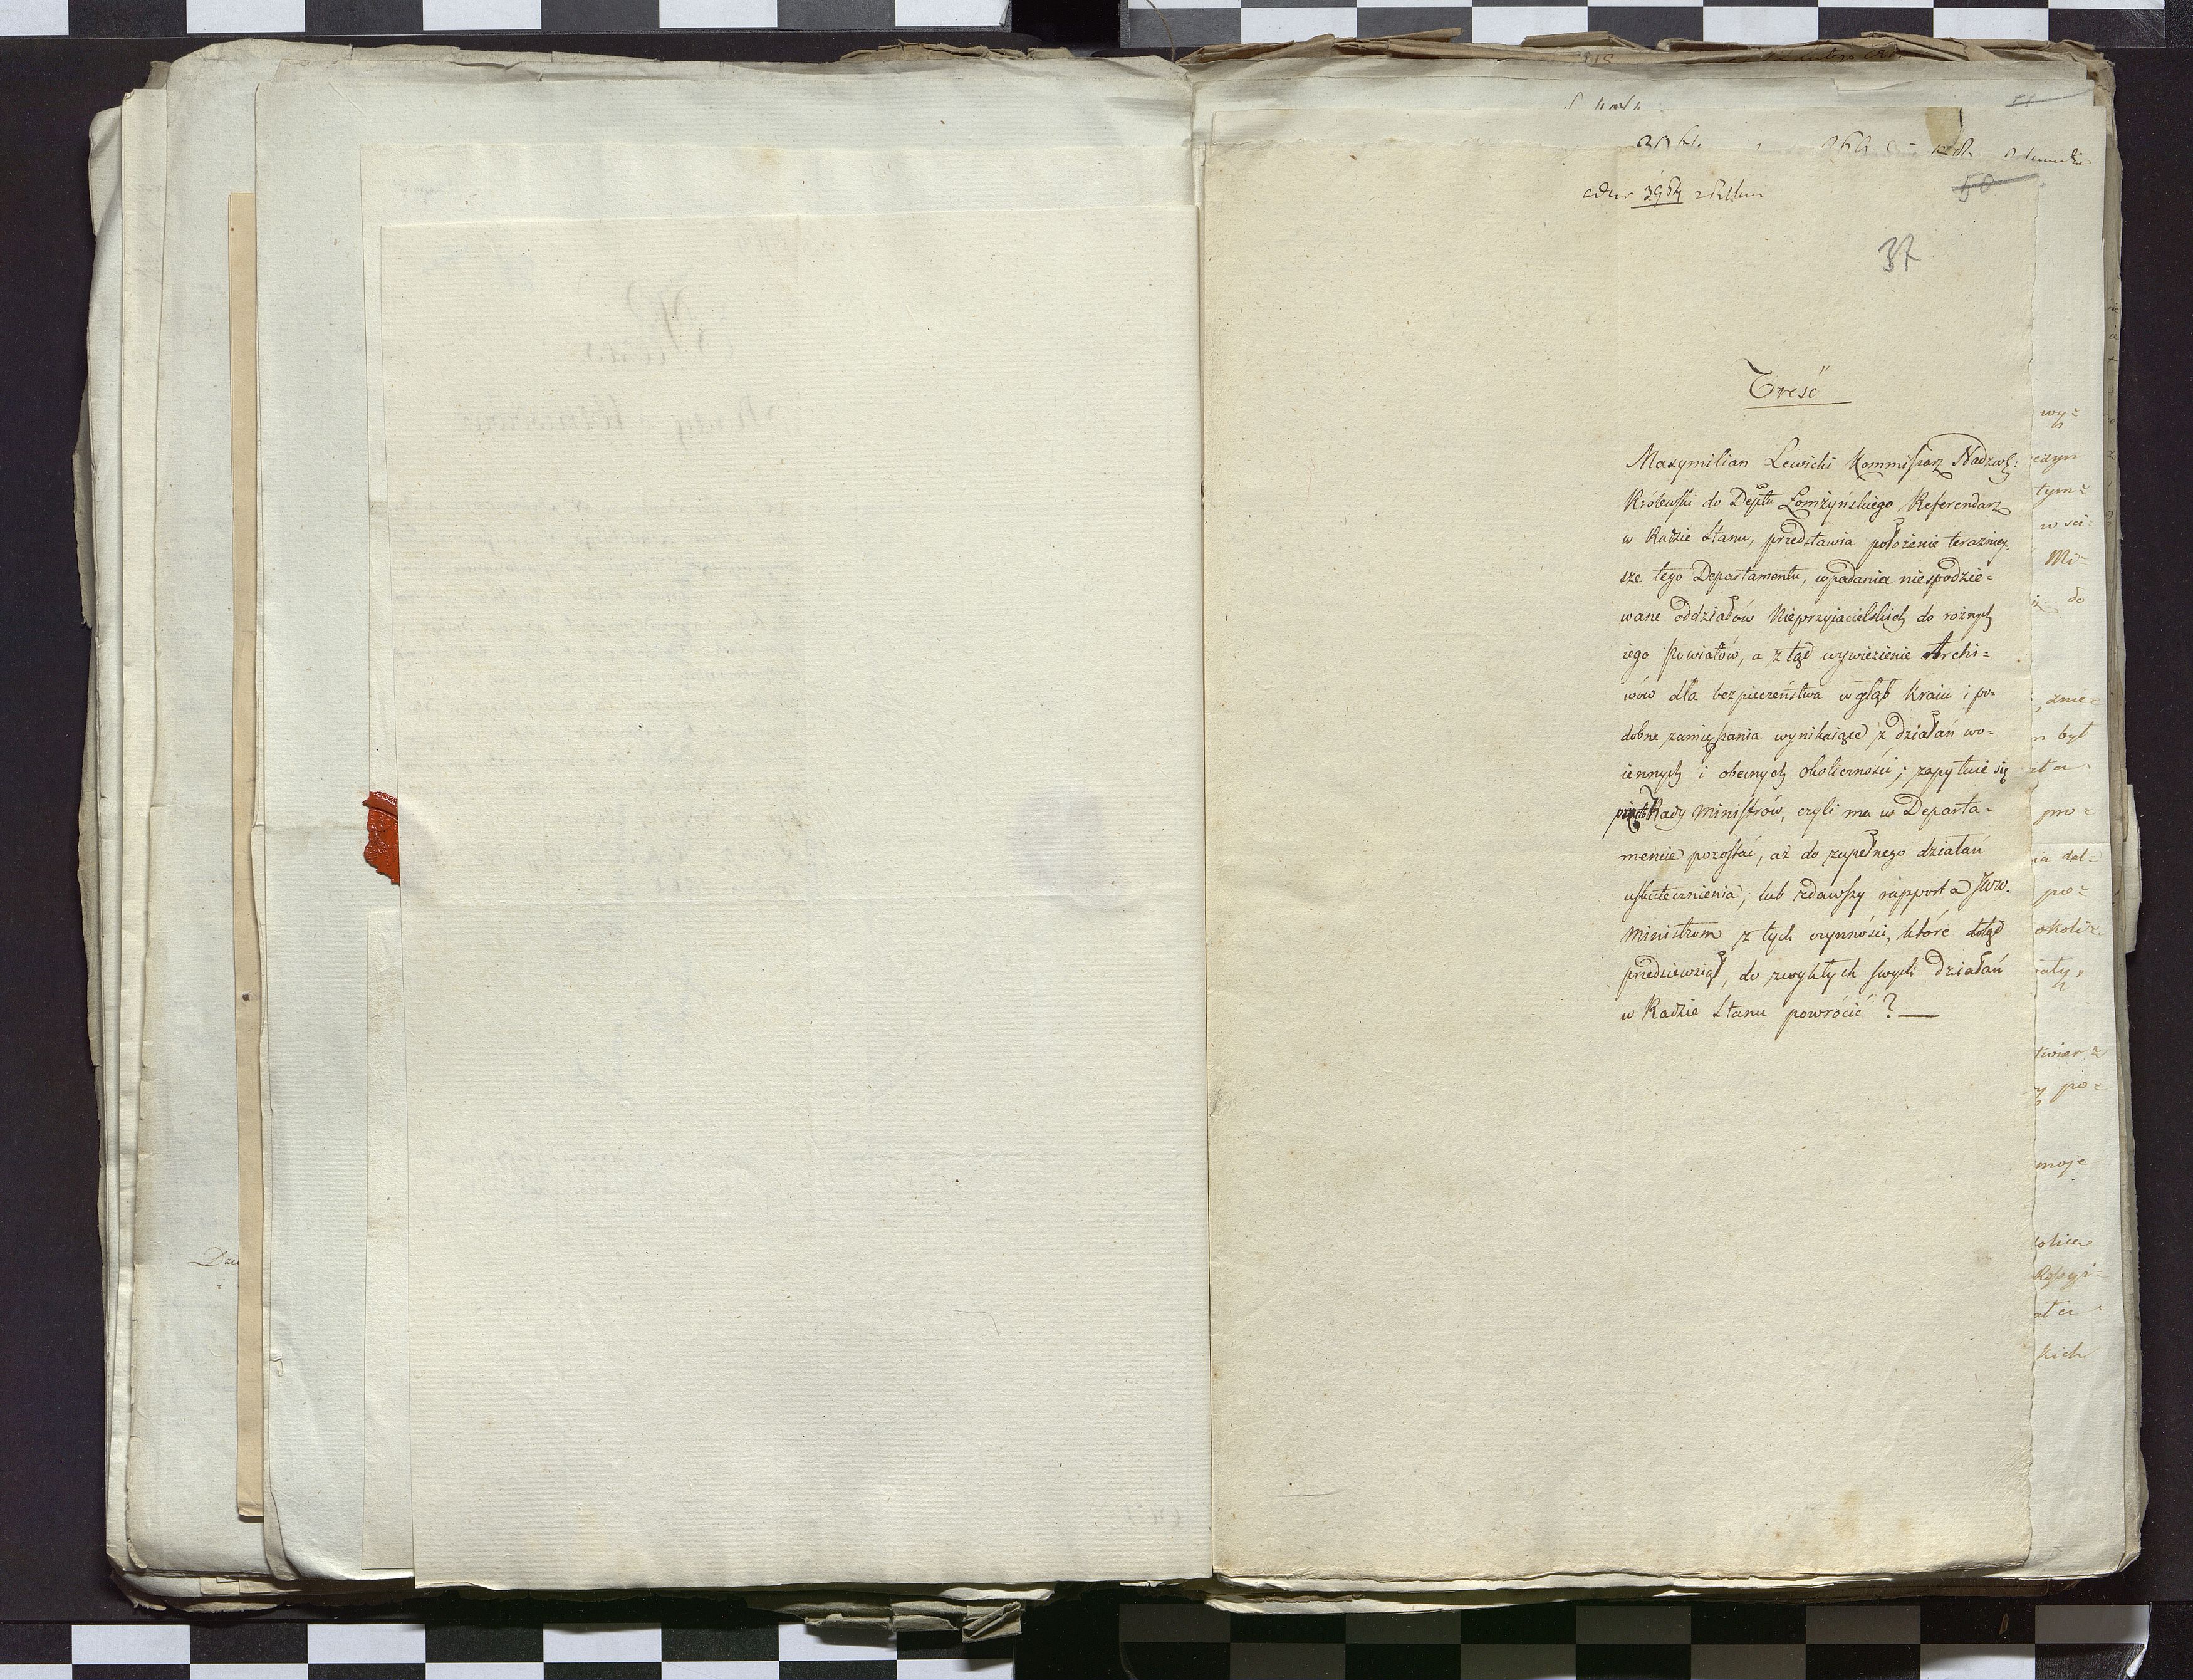 50
37
Treść
Maxymilian Lewicki Kommissarz Nadzw:
Królewski do Depttu Łomżyńskiego Referendarz
w Radzie Stanu, przedstawia położenie teraźniey-
sze tego Departamentu, wpadania niespodzie=
wane oddziałów Nieprzyjacielskich do rożnych
iego Powiatów, a ztąd wywiezienie Archi=
wów dla bezpieczeństwa w głąb Kraiu i po-
dobne zamięszania wynikaiące z działań wo-
iennych i obecnych okoliczności; zapytuie się
Rady Ministrów, czyli ma w Departa-
mencie pozostać, aż do zupełnego działań
uskutecznienia, lub zdawszy rapporta JWW.
Ministrom z tych czynności, które dotąd
przedsiewziął, do zwykłych swych działań
w Radzie Stanu powrócić? —